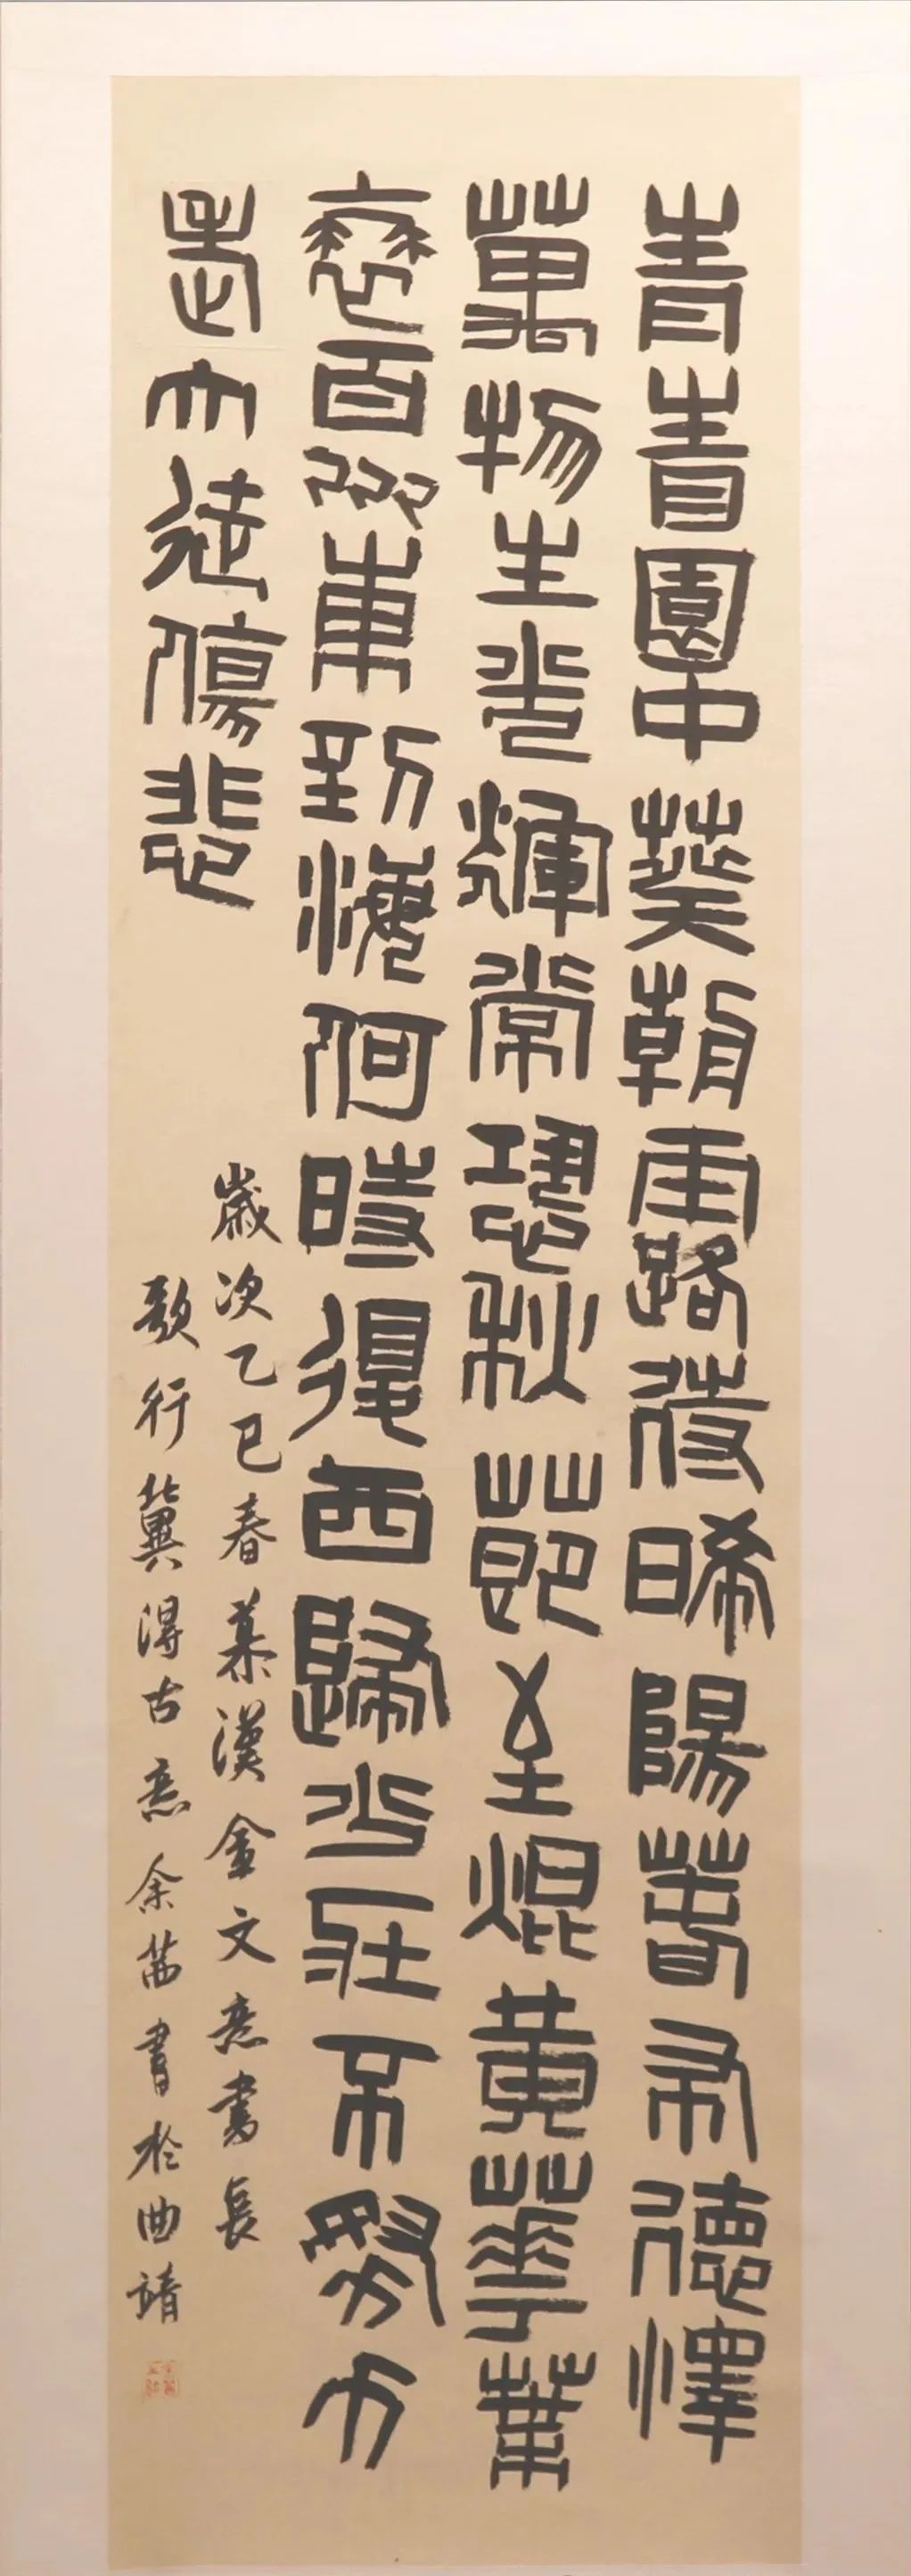 青青園中葵朝露待晞陽春布德澤
萬物生光輝常恐秋節至焜黃華葉
衰百川東到海何時復西歸少壯不努力
老大徒傷悲
歲次乙巳春慕漢金文意書長
歌行冀得古意余茜書於曲靖